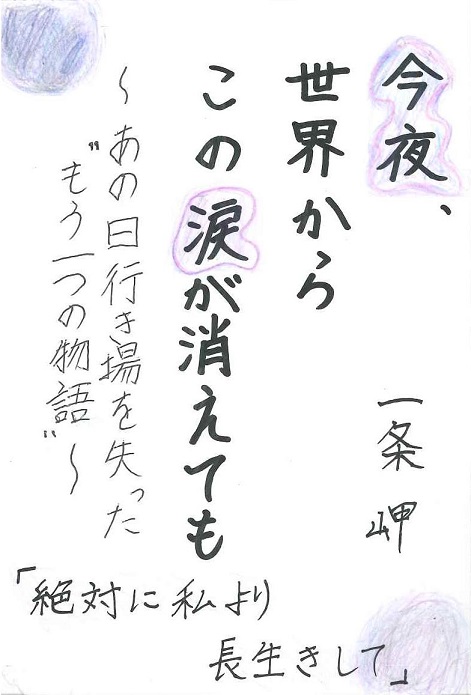 今夜、
世界から
この涙が消えても
一条岬
～あの日行き場を失った
“もう一つの物語”～
「絶対に私より
長生きして」